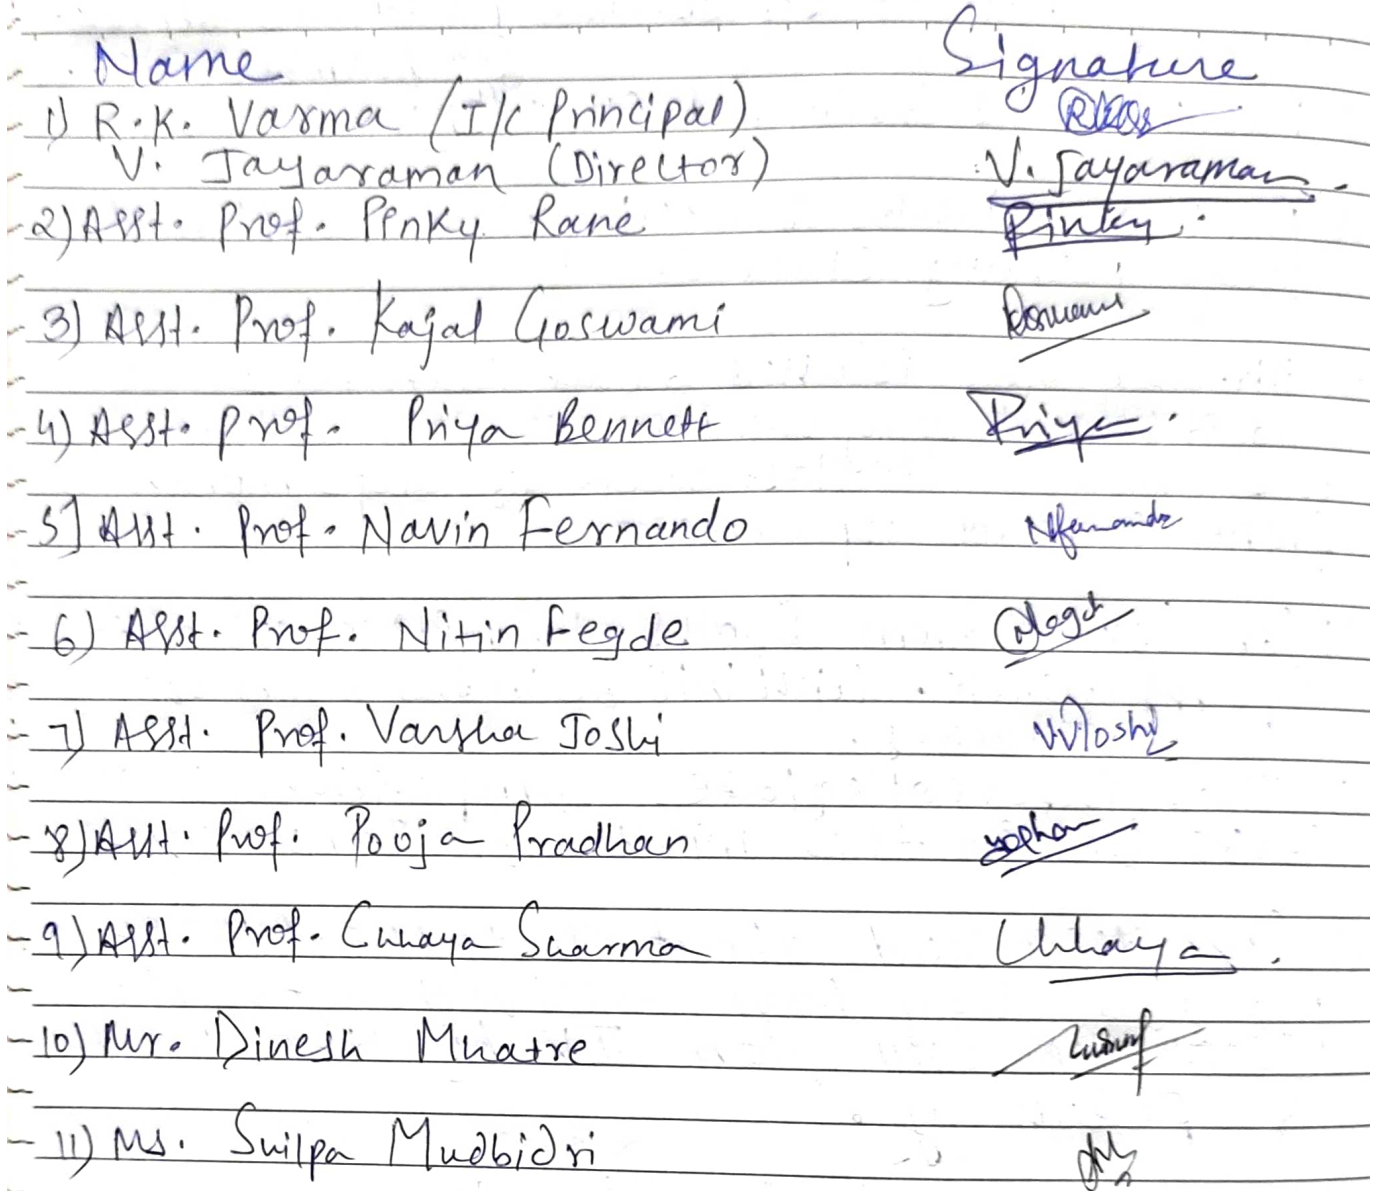 Name Signature
1) R.K. Varma (I/C Principal)
V. Jayaraman (Director) V. Jayaraman
2) Asst. Prof. Pinky Rane Pinky
3) Asst. Prof. Kajal Goswami Goswami
4) Asst. Prof. Priya Bennett Priya
5] Asst. Prof. Navin Fernando NFernando
6) Asst. Prof. Nitin Fegde
7) Asst. Prof. Varsha Joshi VVJoshi
8) Asst. Prof. Pooja Pradhan
9) Asst. Prof. Chhaya Sharma Chhaya
10) Mr. Dinesh Mhatre
11) Ms. Shilpa Mudbidri